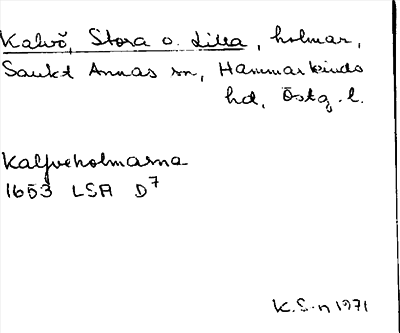 Kalvö, Stora o. Lilla, holmar,
Sankt Annas sn, Hammarkinds
hd, Östg. l.
Kalfveholmarna
1653 LSA D7
K.S-n 1971